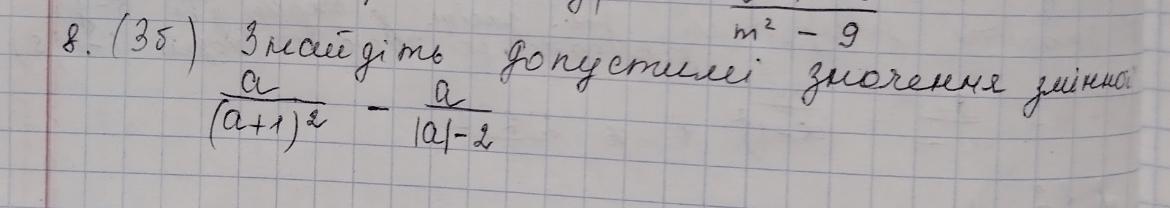 m² - 9
8. (3б) Знайдіть допустимі значення змінної
a/(a+1)² - a/(|a|-2)